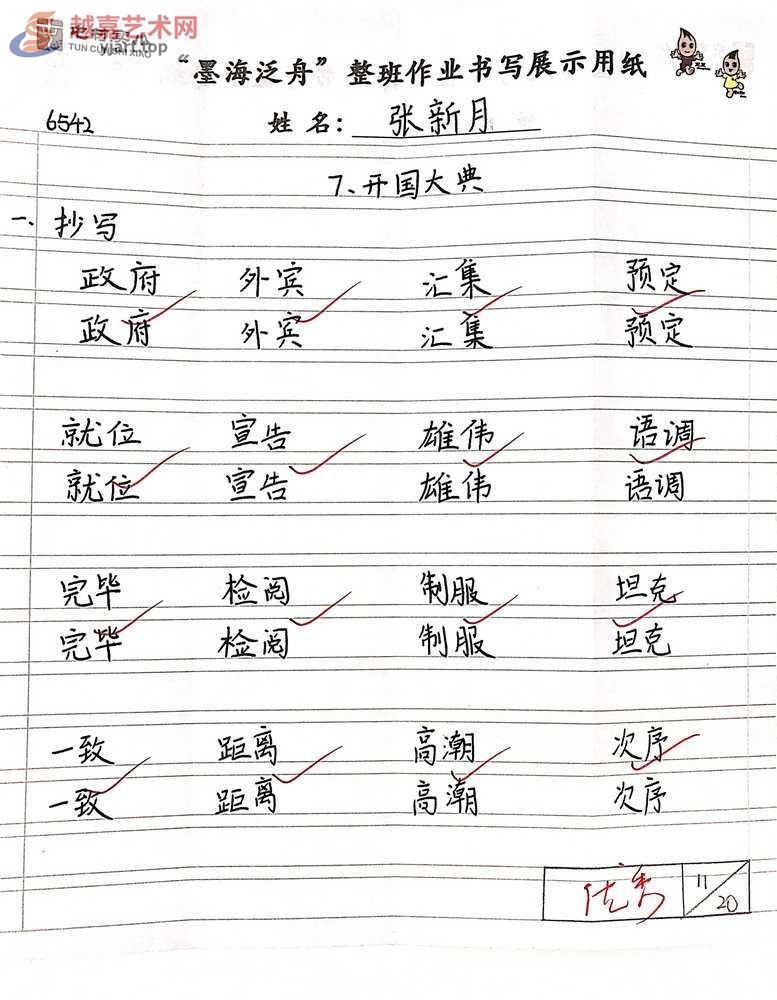 越嘉艺术网
yjart.top
TUN CUN SHI XIAO
“墨海泛舟”整班作业书写展示用纸
6542 姓名: 张新月
7、开国大典
一、抄写
政府 外宾 汇集 预定
政府 外宾 汇集 预定
就位 宣告 雄伟 语调
就位 宣告 雄伟 语调
完毕 检阅 制服 坦克
完毕 检阅 制服 坦克
一致 距离 高潮 次序
一致 距离 高潮 次序
优秀 11/20